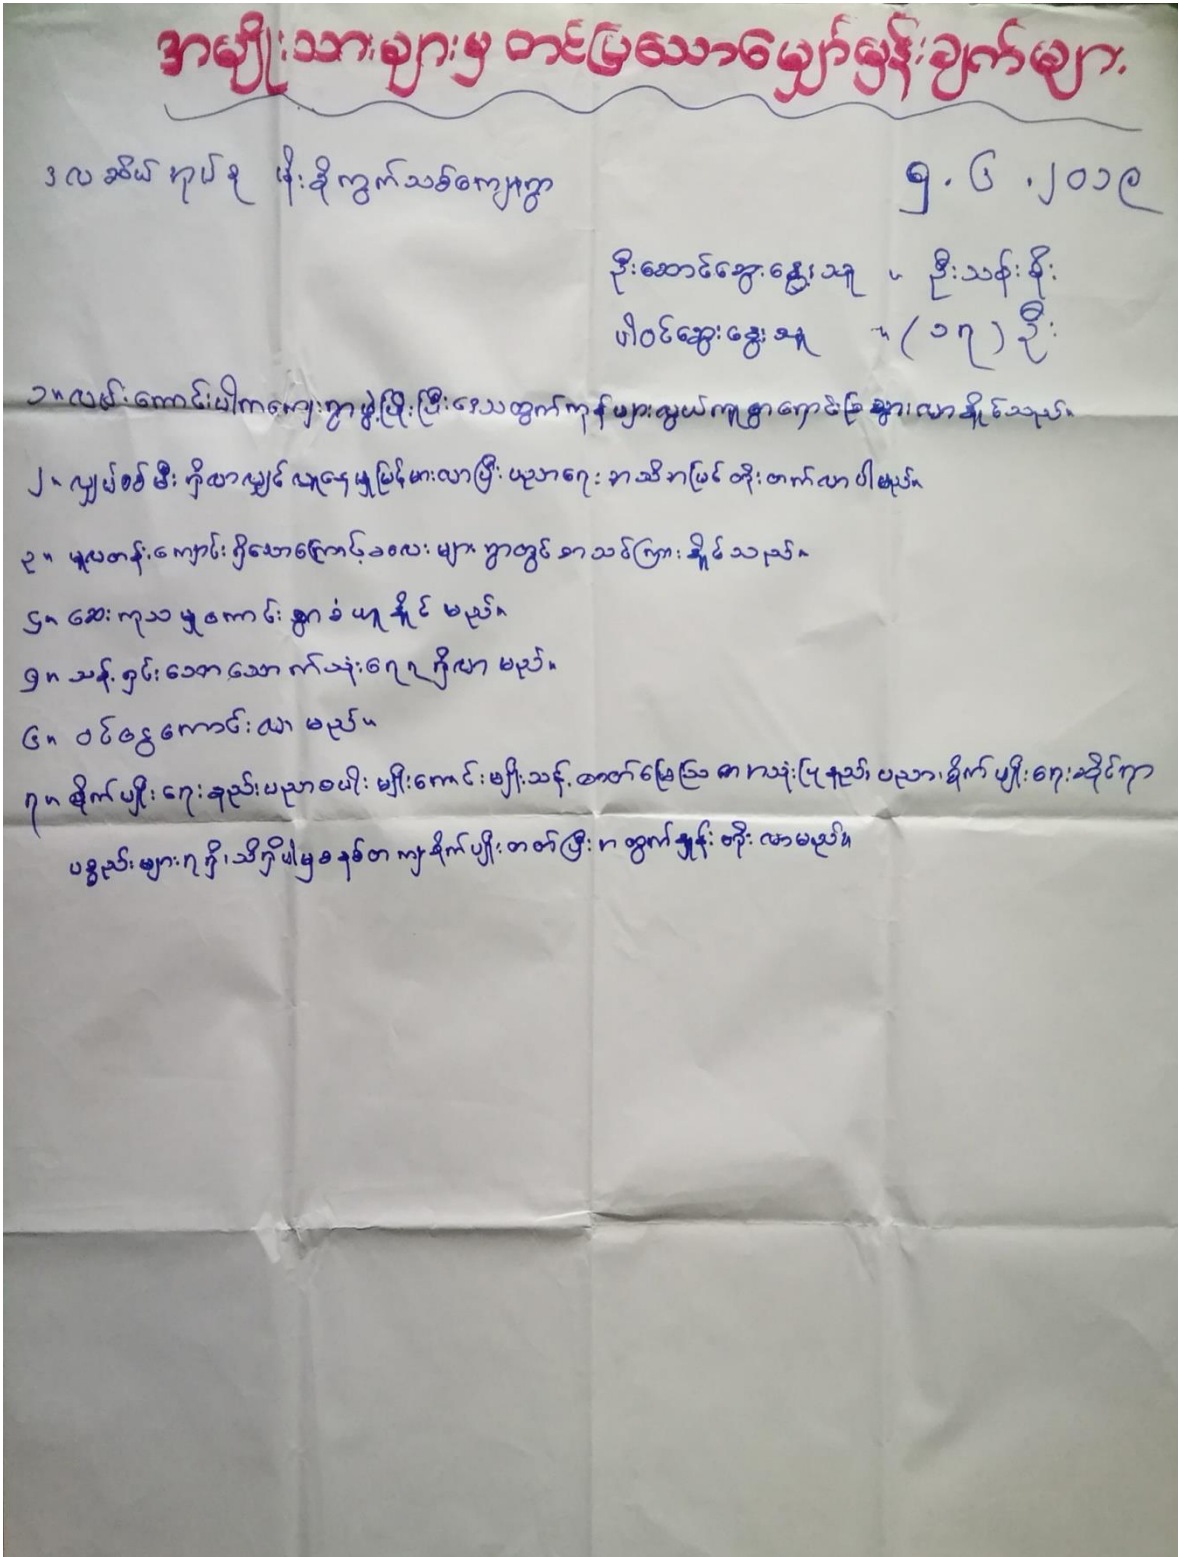 အမျိုးသားများမှ တင်ပြသောမျှော်မှန်းချက်များ.
ဒလဆိပ်အုပ်စု ဖိုးခိုကွက်သစ်ကျေးရွာ ၅.၆.၂၀၁၉
ဦးဆောင်ဆွေးနွေးသူ ။ ဦးသန်းစိုး
ပါဝင်ဆွေးနွေးသူ ။ (၁၇) ဦး
၁။ လမ်းကောင်းပါကကျေးရွာဖွံ့ဖြိုးပြီးဒေသထွက်ကုန်များလွယ်ကူစွာရောင်းချသွားလာနိုင်သည်။
၂။ လျှပ်စစ်မီးရှိလာလျှင် လူနေမှုမြင့်မားလာပြီး ပညာရေး အသိအမြင် တိုးတက်လာပါမည်။
၃။ မူလတန်းကျောင်းရှိသောကြောင့်ကလေးများရွာတွင် စာသင်ကြားနိုင်သည်။
၄။ ဆေးကုသမှုကောင်းစွာခံယူနိုင်မည်။
၅။ သန့်ရှင်းသောသောက်သုံးရေရရှိလာမည်။
၆။ ဝင်ငွေကောင်းလာမည်။
၇။ စိုက်ပျိုးရေးနည်းပညာစပါးမျိုးကောင်းမျိုးသန့်၊ဓာတ်မြေသြဇာအသုံးပြုနည်းပညာ၊စိုက်ပျိုးရေးဆိုင်ရာ
ပစ္စည်းများရရှိ၊သိရှိပါမှစနစ်တကျစိုက်ပျိုးတတ်ပြီးအထွက်နှုန်းတိုးလာမည်။